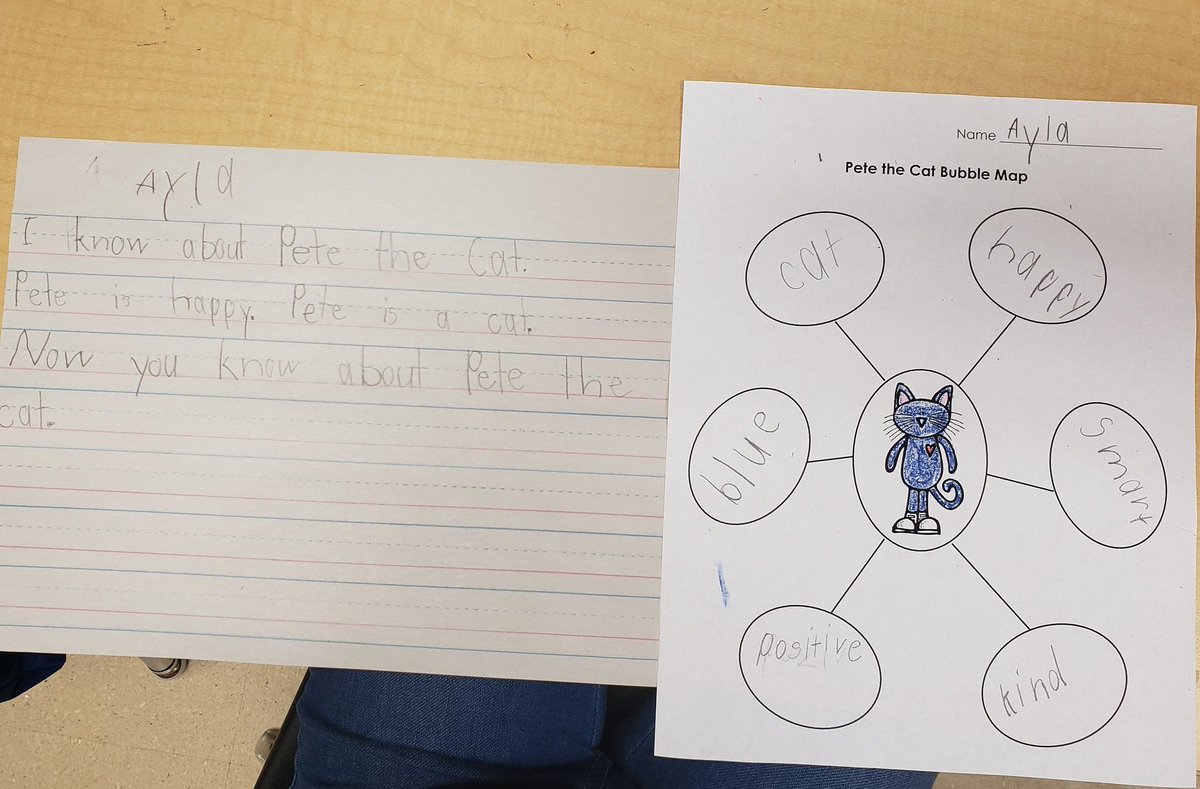 Ayla
I know about Pete the Cat.
Pete is happy. Pete is a cat.
Now you know about Pete the
cat.
Name Ayla
Pete the Cat Bubble Map
cat
happy
blue
smart
positive
kind